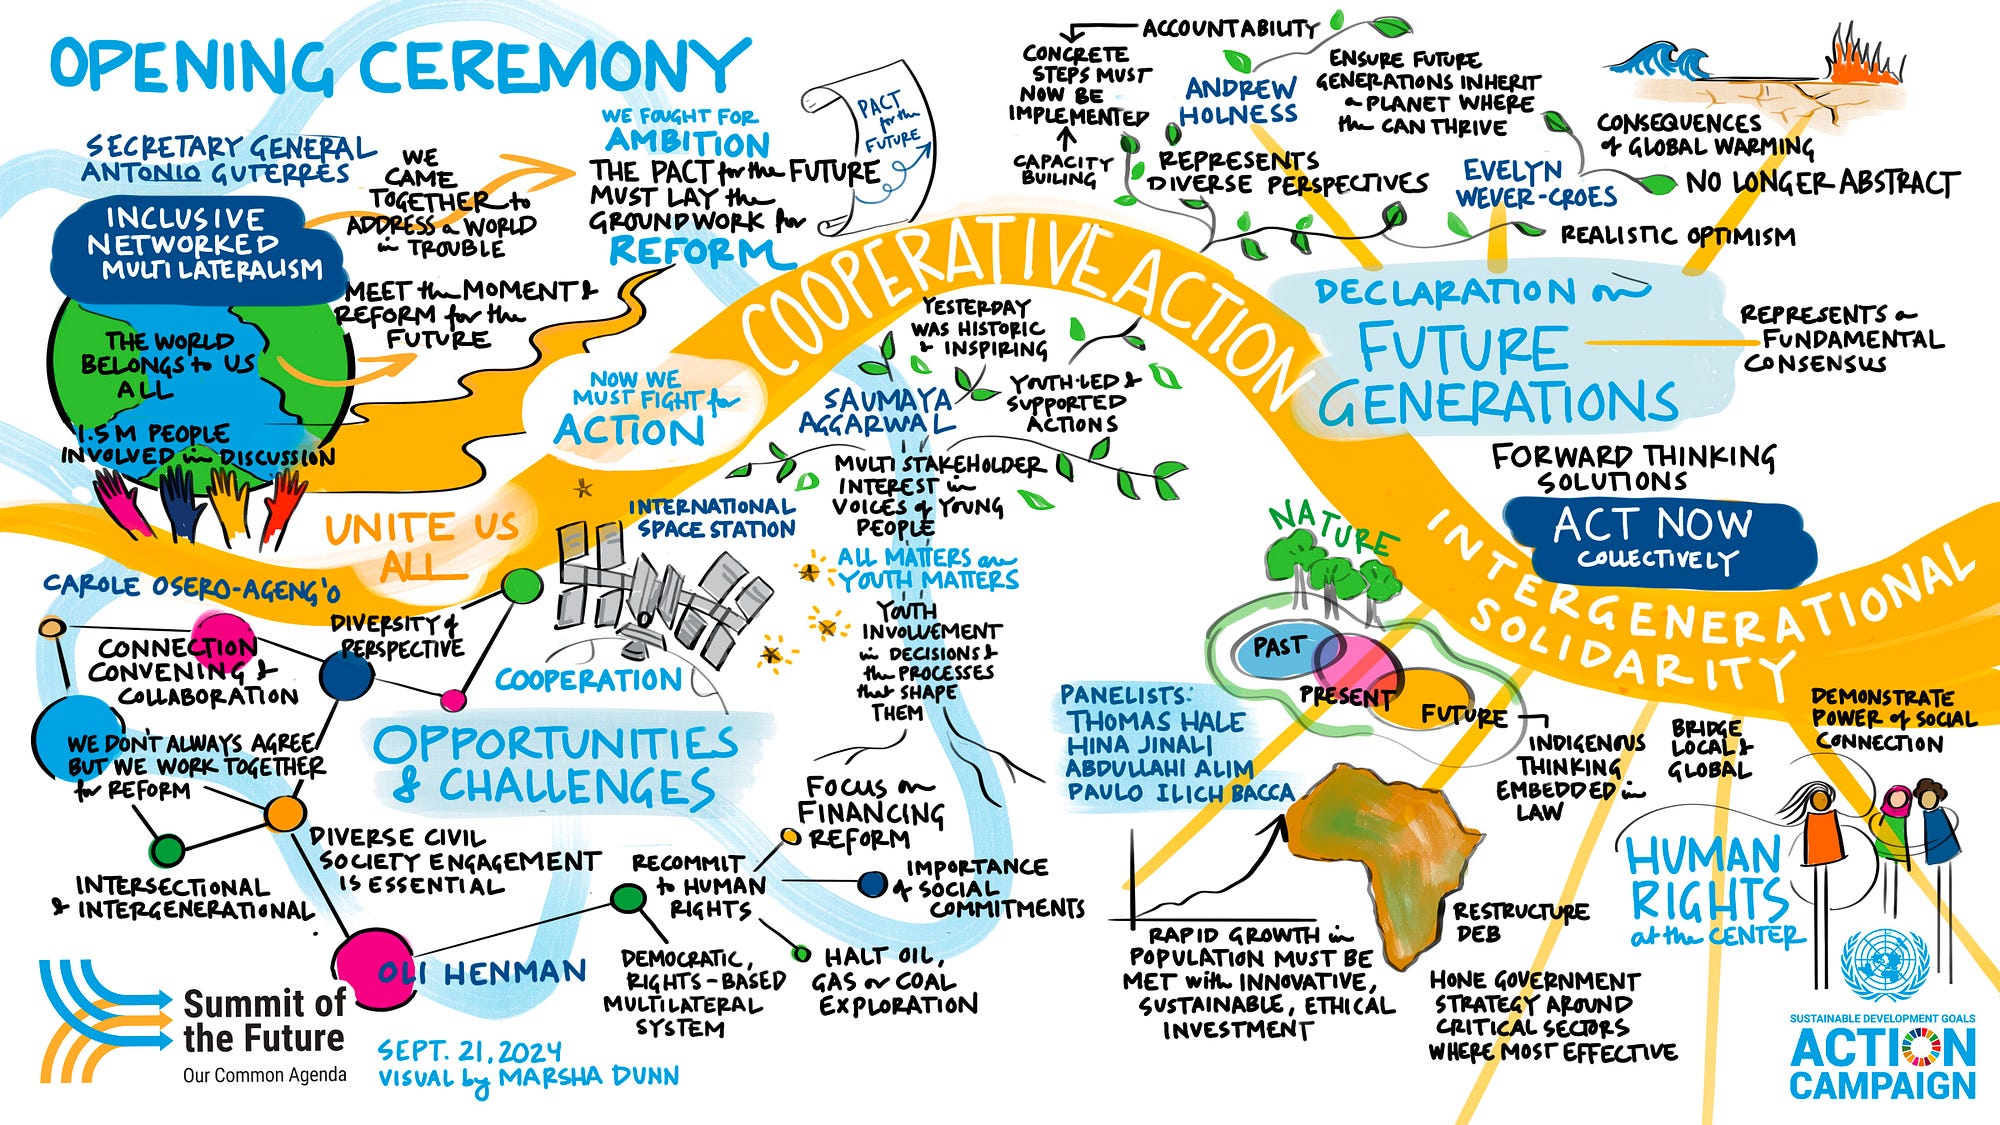 OPENING CEREMONY
SECRETARY GENERAL
ANTONIO GUTERRES
INCLUSIVE
NETWORKED
MULTILATERALISM
WE
CAME
TOGETHER to
ADDRESS a WORLD
in TROUBLE
MEET the MOMENT &
REFORM for the
FUTURE
THE WORLD
BELONGS to US
ALL
1.5 M PEOPLE
INVOLVED in DISCUSSION
WE FOUGHT FOR
AMBITION
THE PACT for the FUTURE
MUST LAY the
GROUNDWORK for
REFORM
PACT
for the
FUTURE
NOW WE
MUST FIGHT for
ACTION
UNITE US
ALL
COOPERATIVE ACTION
ACCOUNTABILITY
CONCRETE
STEPS MUST
NOW BE
IMPLEMENTED
CAPACITY
BUILING
ANDREW
HOLNESS
ENSURE FUTURE
GENERATIONS INHERIT
a PLANET WHERE
the CAN THRIVE
REPRESENTS
DIVERSE PERSPECTIVES
EVELYN
WEVER-CROES
CONSEQUENCES
of GLOBAL WARMING
NO LONGER ABSTRACT
REALISTIC OPTIMISM
DECLARATION on
FUTURE
GENERATIONS
REPRESENTS a
FUNDAMENTAL
CONSENSUS
FORWARD THINKING
SOLUTIONS
ACT NOW
COLLECTIVELY
INTERGENERATIONAL
SOLIDARITY
YESTERDAY
WAS HISTORIC
& INSPIRING
SAUMAYA
AGGARWAL
YOUTH-LED &
SUPPORTED
ACTIONS
MULTISTAKEHOLDER
INTEREST in
VOICES of YOUNG
PEOPLE
ALL MATTERS are
YOUTH MATTERS
YOUTH
INVOLVEMENT
in DECISIONS &
the PROCESSES
that SHAPE
THEM
INTERNATIONAL
SPACE STATION
COOPERATION
OPPORTUNITIES
& CHALLENGES
CAROLE OSERO-AGENG'O
CONNECTION
CONVENING &
COLLABORATION
DIVERSITY of
PERSPECTIVE
WE DON'T ALWAYS AGREE
BUT WE WORK TOGETHER
for REFORM
INTERSECTIONAL
& INTERGENERATIONAL
DIVERSE CIVIL
SOCIETY ENGAGEMENT
IS ESSENTIAL
OLI HENMAN
RECOMMIT
to HUMAN
RIGHTS
FOCUS on
FINANCING
REFORM
IMPORTANCE
of SOCIAL
COMMITMENTS
DEMOCRATIC,
RIGHTS-BASED
MULTILATERAL
SYSTEM
HALT OIL,
GAS or COAL
EXPLORATION
NATURE
PAST
PRESENT
FUTURE
INDIGENOUS
THINKING
EMBEDDED in
LAW
PANELISTS:
THOMAS HALE
HINA JINALI
ABDULLAHI ALIM
PAULO ILICH BACCA
RAPID GROWTH in
POPULATION MUST BE
MET with INNOVATIVE,
SUSTAINABLE, ETHICAL
INVESTMENT
RESTRUCTURE
DEB
HONE GOVERNMENT
STRATEGY AROUND
CRITICAL SECTORS
WHERE MOST EFFECTIVE
BRIDGE
LOCAL &
GLOBAL
DEMONSTRATE
POWER of SOCIAL
CONNECTION
HUMAN
RIGHTS
at the CENTER
Summit of
the Future
Our Common Agenda
SEPT. 21, 2024
VISUAL by MARSHA DUNN
SUSTAINABLE DEVELOPMENT GOALS
ACTION
CAMPAIGN